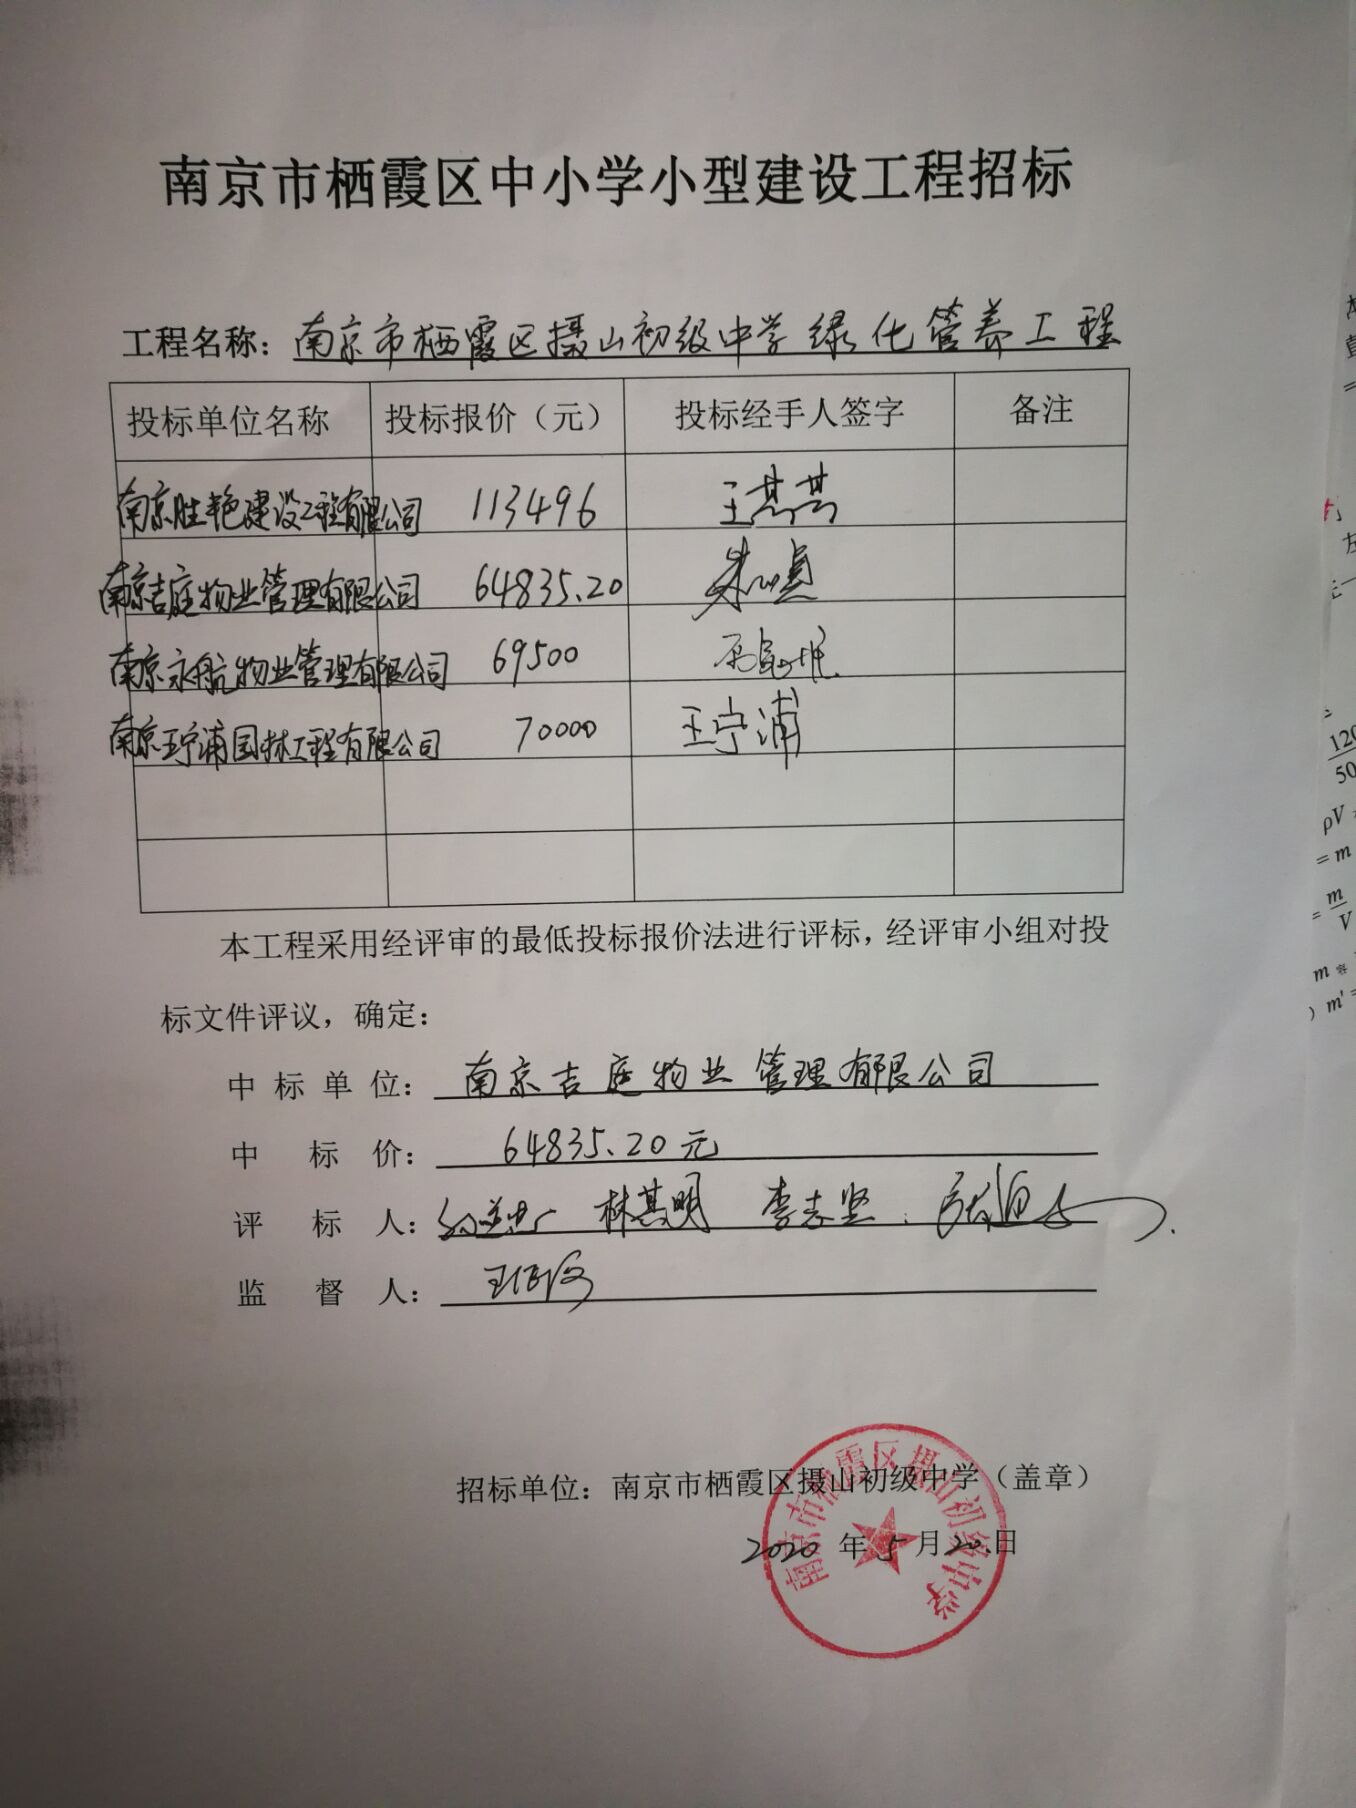 南京市栖霞区中小学小型建设工程招标
工程名称：南京市栖霞区摄山初级中学绿化管养工程
投标单位名称 投标报价（元） 投标经手人签字 备注
南京胜艳建设工程有限公司 113496 王其其
南京吉庭物业管理有限公司 64835.20
南京永航物业管理有限公司 69500
南京王宁浦园林工程有限公司 70000 王宁浦
本工程采用经评审的最低投标报价法进行评标，经评审小组对投
标文件评议，确定：
中标单位：南京吉庭物业管理有限公司
中标价：64835.20元
评标人：林其明 李志坚
监督人：
招标单位：南京市栖霞区摄山初级中学（盖章）
2020年5月20日
南京市栖霞区摄山初级中学
120
50
ρV
= m
= m
V
m容
) m' =